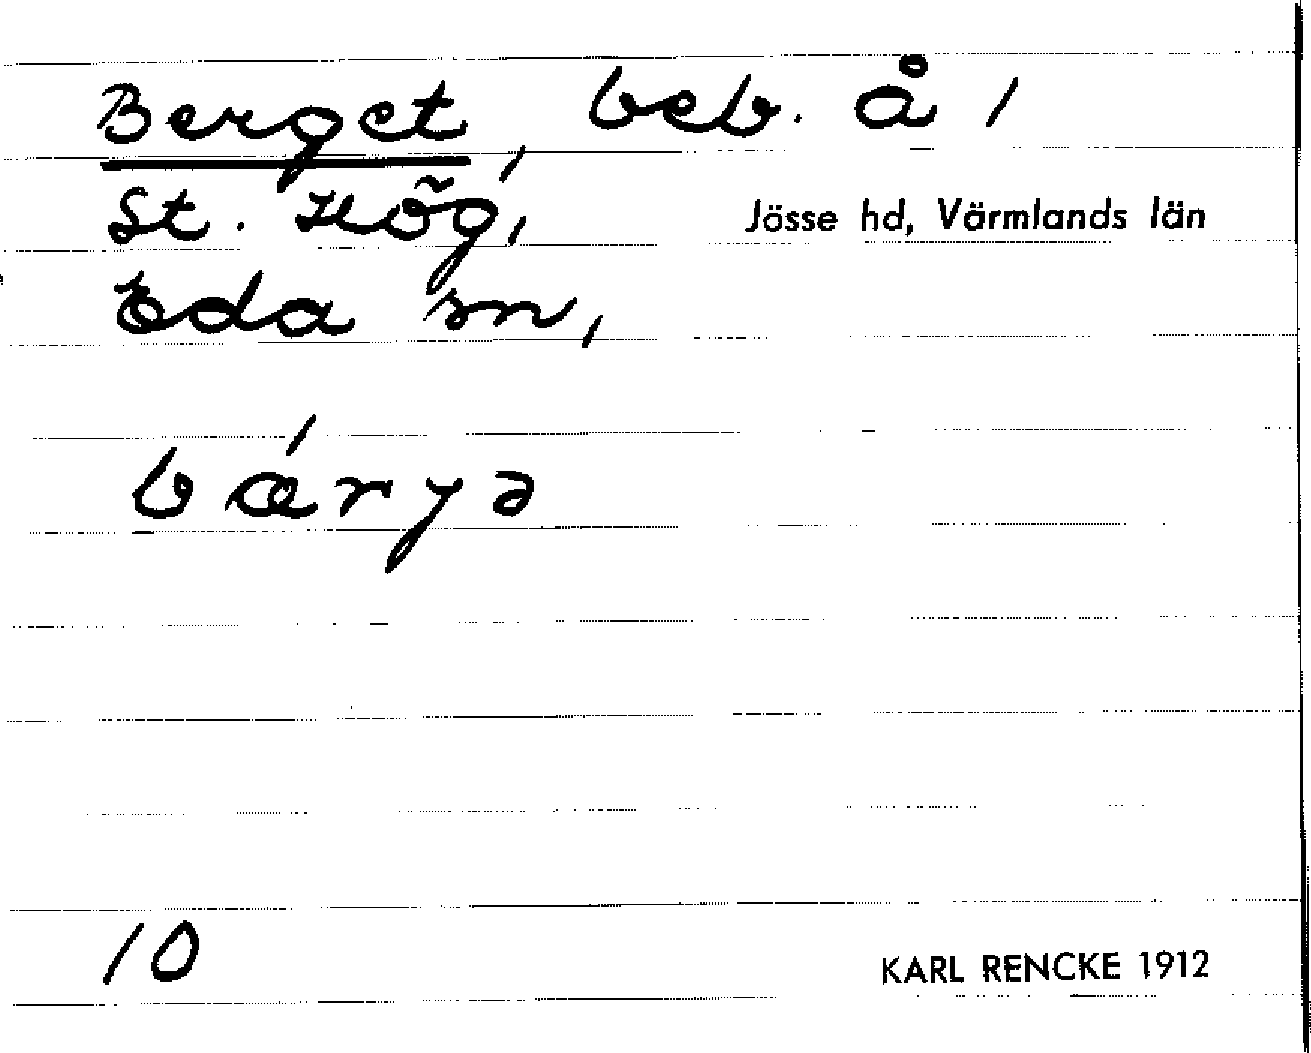 Berget, beb. å 1
St. Hög,
Jösse hd, Värmlands län
Eda sn,
bǽryə
10
KARL RENCKE 1912